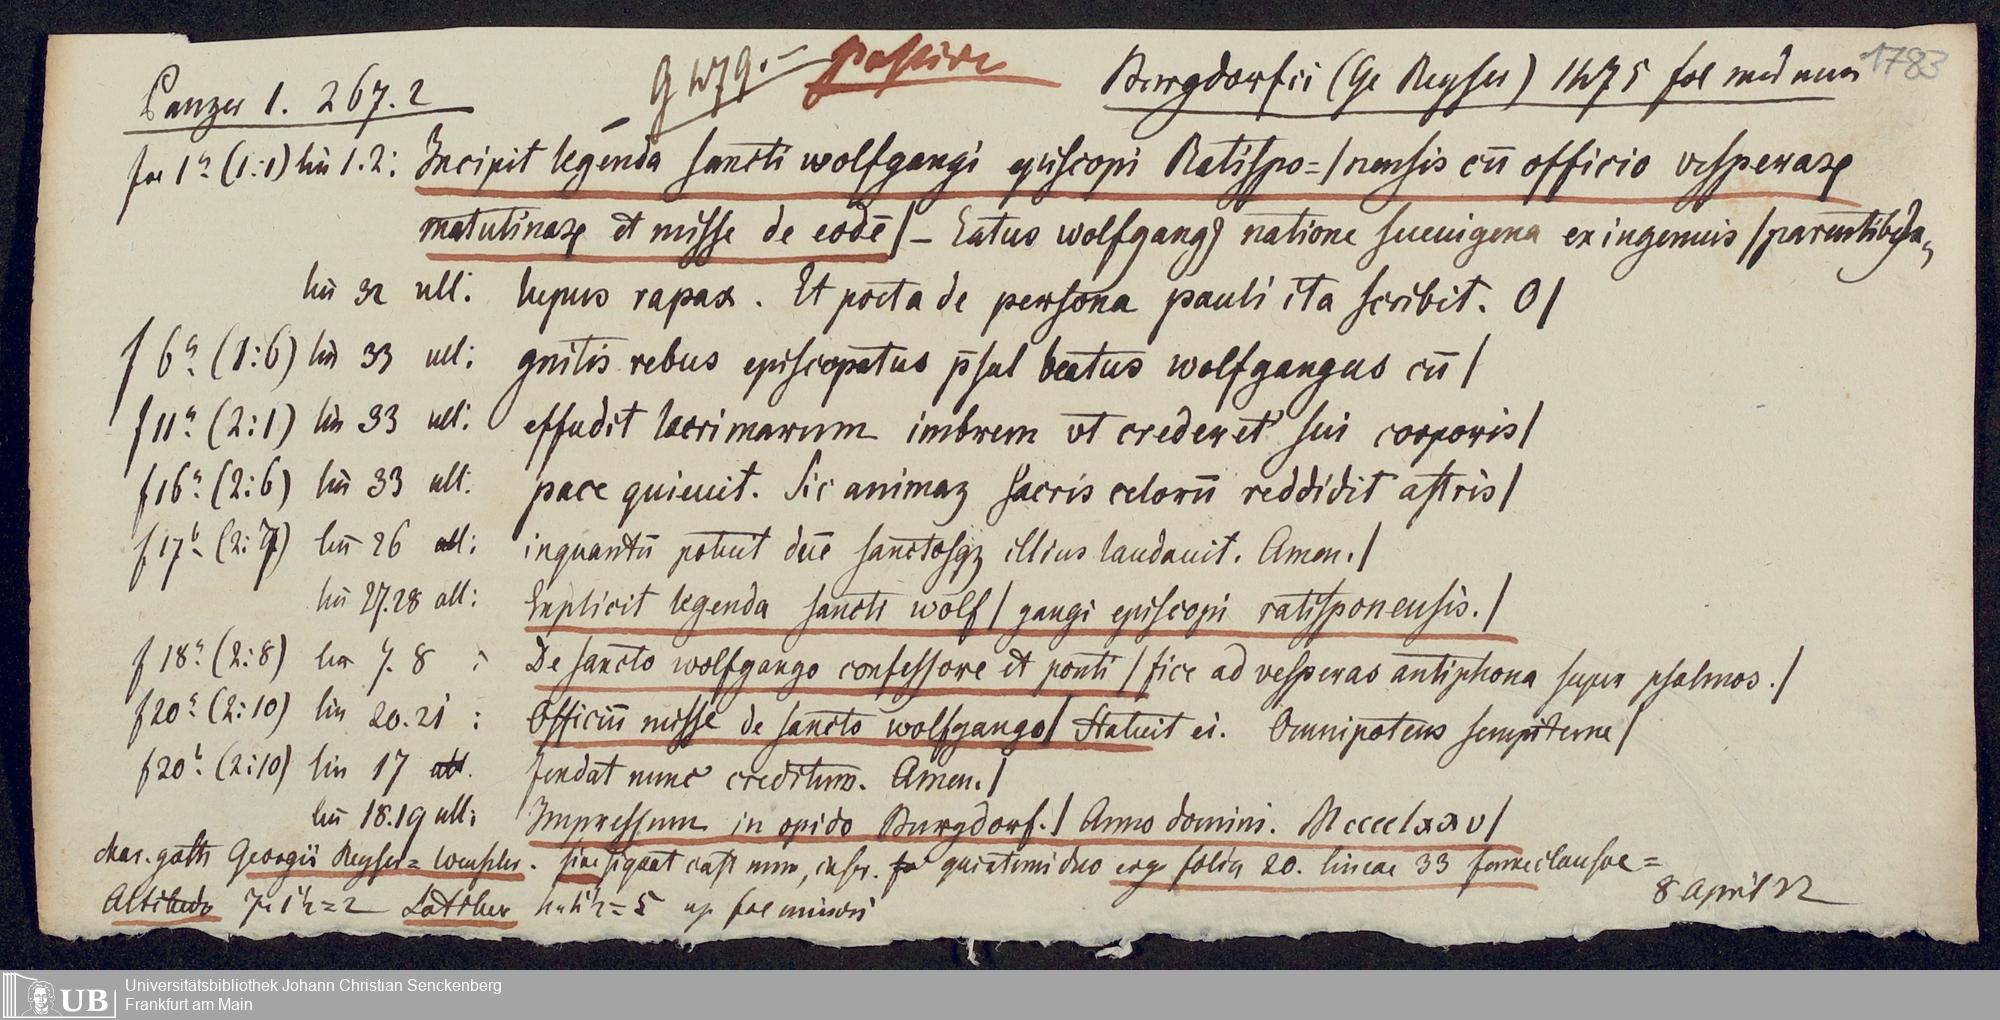 Panzer 1. 267.2 Passive Burgdorfii (Ge Reyser) 1475 fol min 1783
fol 1a (1:1) lin 1.2: Incipit legenda sancti wolfgangi episcopi Ratispo=/nensis cū officio vesperaꝝ
matutinaꝝ et misse de eodē/ – Eatus wolfgangꝰ natione sueuigena ex ingenuis /parentibꝰ
lin 32 ult: lupus rapax. Et poeta de persona pauli ita scribit. O/
f 6a (1:6) lin 33 ult: gnitis rebus episcopatus p̄sul beatus wolfgangus cū/
f 11a (2:1) lin 33 ult: effudit lacrimarum imbrem vt crederet sui corporis/
f 16a (2:6) lin 33 ult. pace quieuit. Sic animaꝫ sacris celorū reddidit astris/
f 17b (2:7) lin 26 inquantū potuit dūe sanctosqꝫ illius laudauit. Amen./
lin 27.28 ult: Explicit legenda sancti wolf/gangi episcopi ratisponensis./
f 18a (2:8) lin 7. 8 : De sancto wolfgango confessore et ponti/fice ad vesperas antiphona super psalmos./
f 20a (2:10) lin 20.21 : Officiū misse de sancto wolfgango/ Statuit ei. Omnipotens sempiterne/
f 20b (2:10) lin 17 fendat nunc creditum. Amen./
lin 18.19 ult: Impressum in opido Burgdorf./ Anno domini. Mcccclxxv/
char. goth Georgii Reyser= sine signat cust num, quinterni duo erg folia 20. lineae 33
Altitudo 7 1/2=2 Latitudo 4 1/2=5 fol minori 8 April 32
Universitätsbibliothek Johann Christian Senckenberg
UB Frankfurt am Main